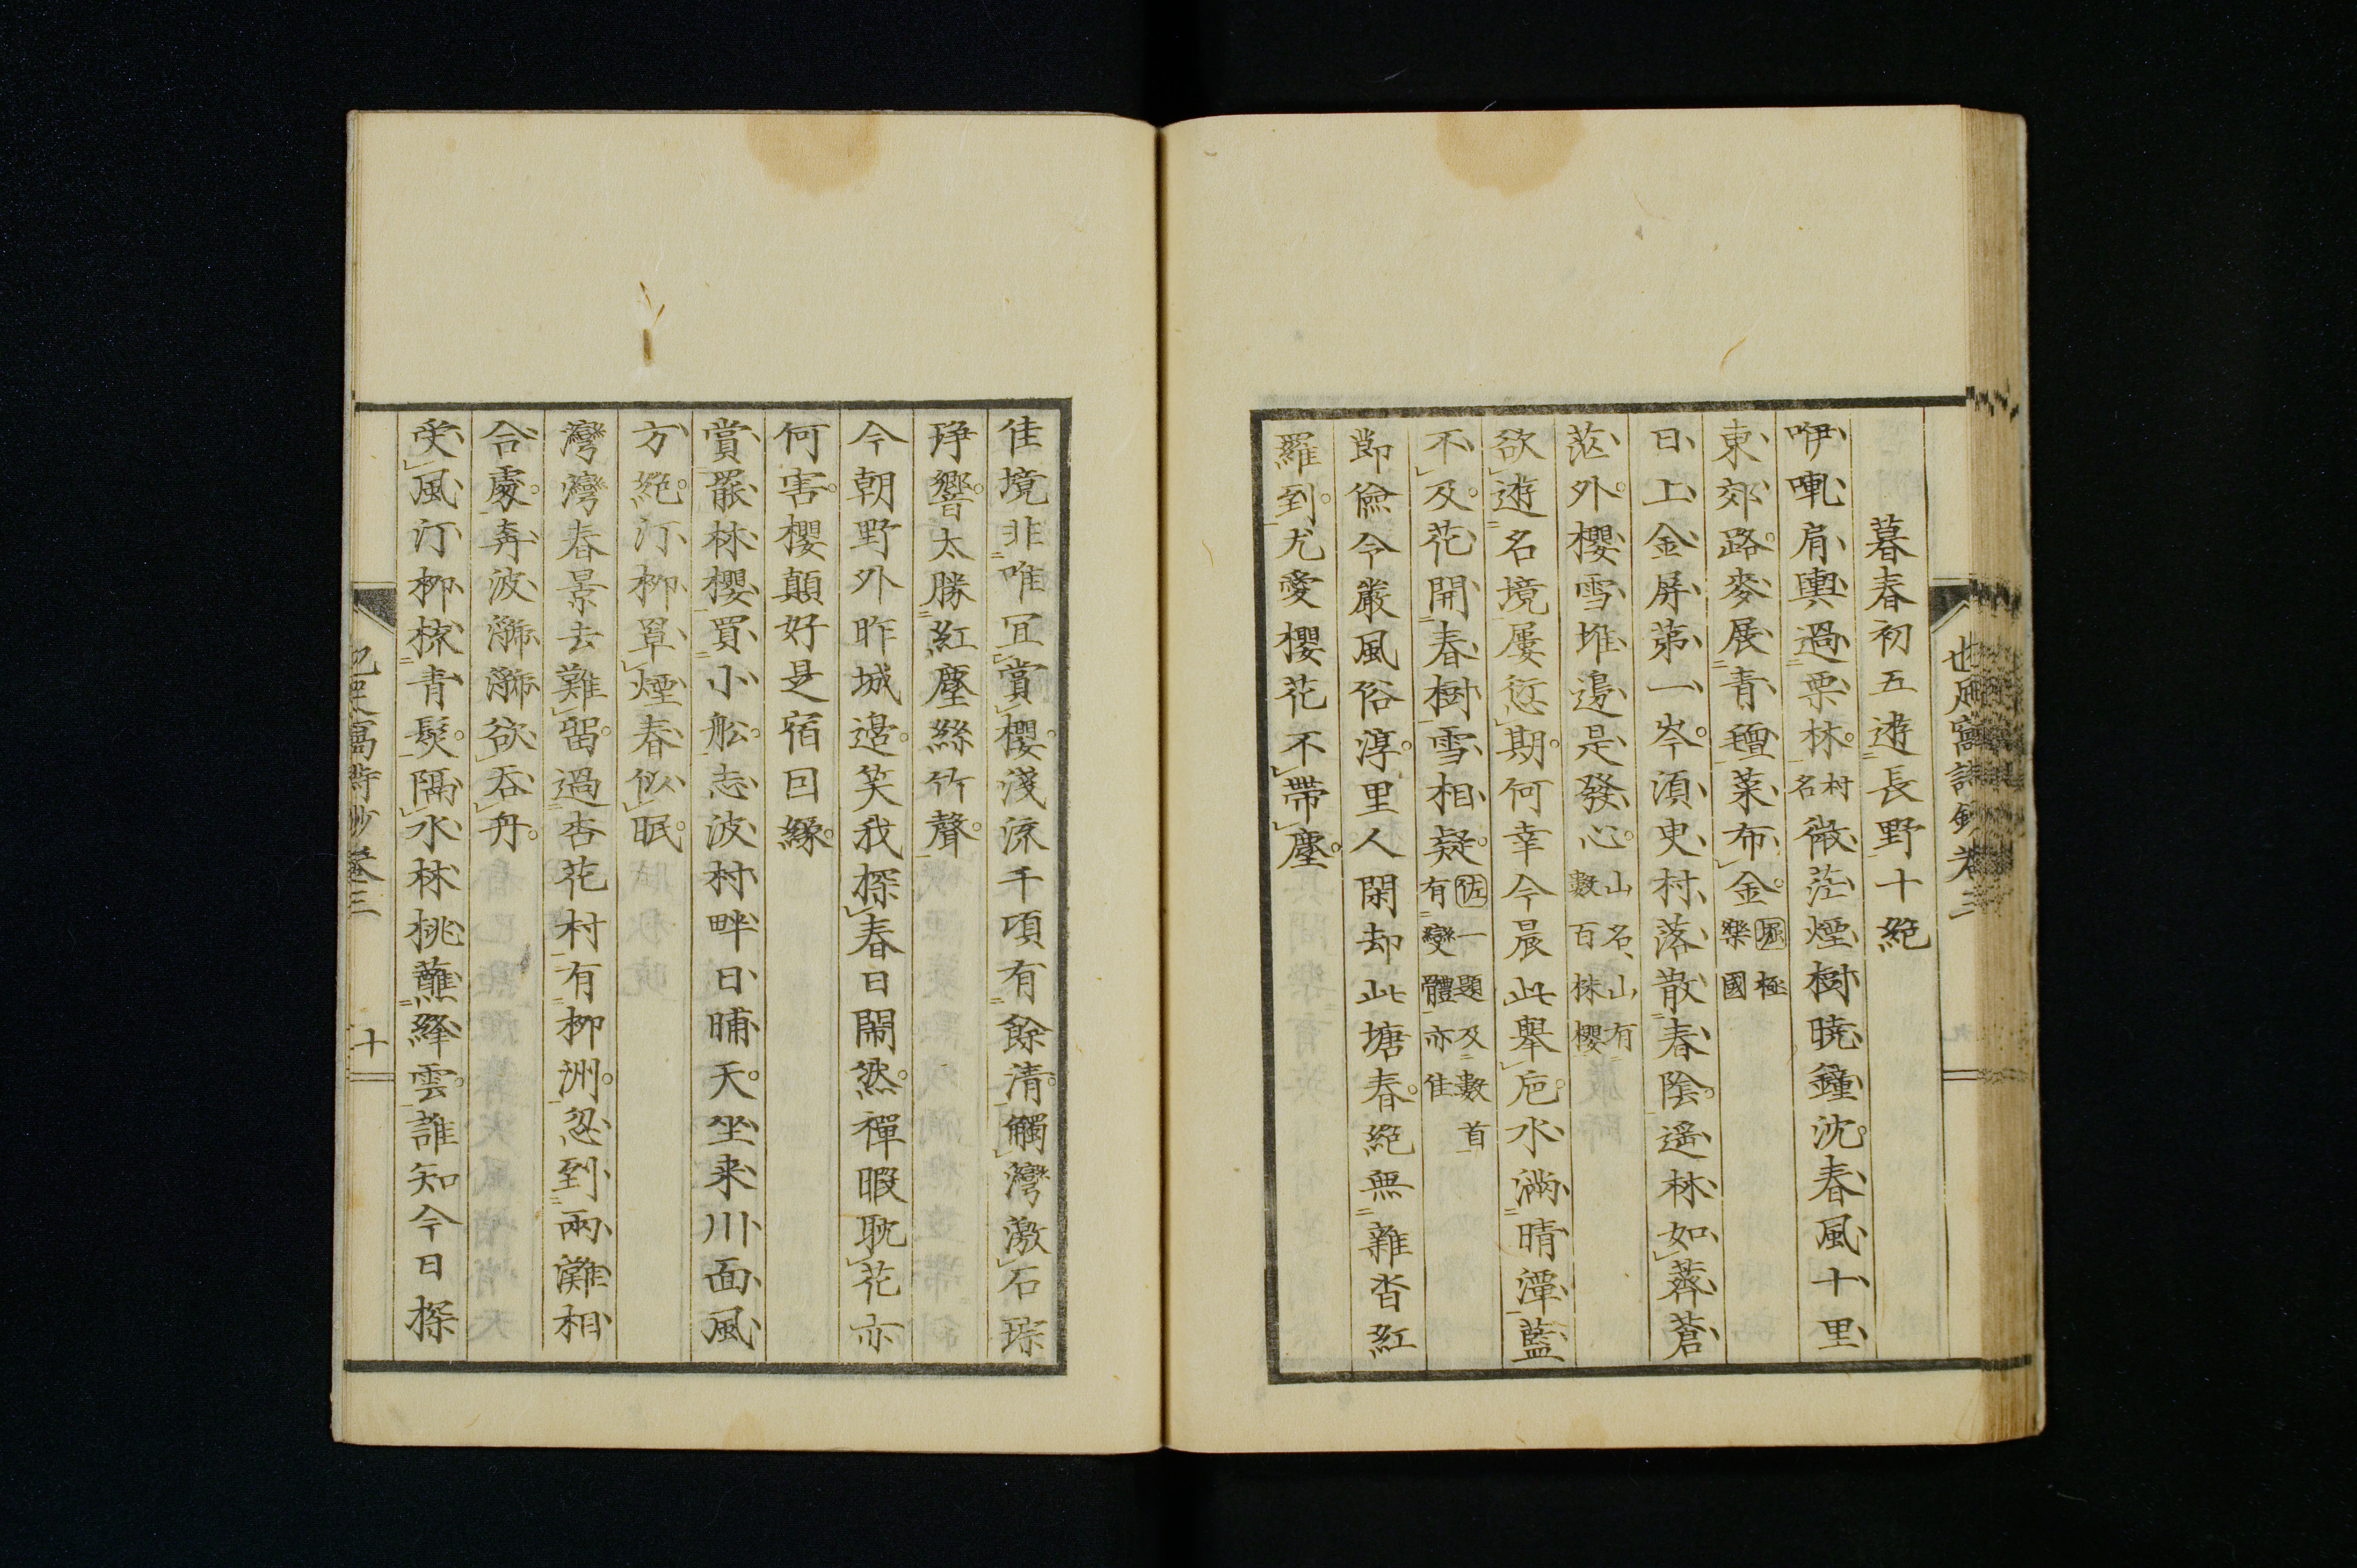 暮春初五遊長野十絶
咿喇肩輿過栗林村名微茫煙樹暁鐘沈春風十里
東郊路麥展青氈菜布金屈極樂國
日上金屏第一岑須史村落散春陰遥林如薺蒼
茫外櫻雪堆邊是發心山名山有數百株櫻
欲遊名境屢愆期何幸今晨此舉巵水滿晴潭藍
不及花開春樹雪相疑佐一題及數首有變體亦佳
節儉令嚴風俗淳里人閑却此塘春絶無雜沓紅
羅到尤愛櫻花不帶塵
佳境非唯宜賞櫻淺流千項有餘清觸灣激石琮
琤響太勝紅塵絲竹聲
今朝野外昨城邉笑我探春日鬧然禪暇耽花亦
何害櫻顛好是宿因緣
賞罷林櫻買小舩志波村畔日晡天坐来川面風
方絶汀柳罩煙春似眠
灣灣春景去難留過杏花村有柳洲忽到兩灘相
合處奔波㶁㶁欲吞舟
受風汀柳梳青髮隔水林桃蘸絳雲誰知今日探
十